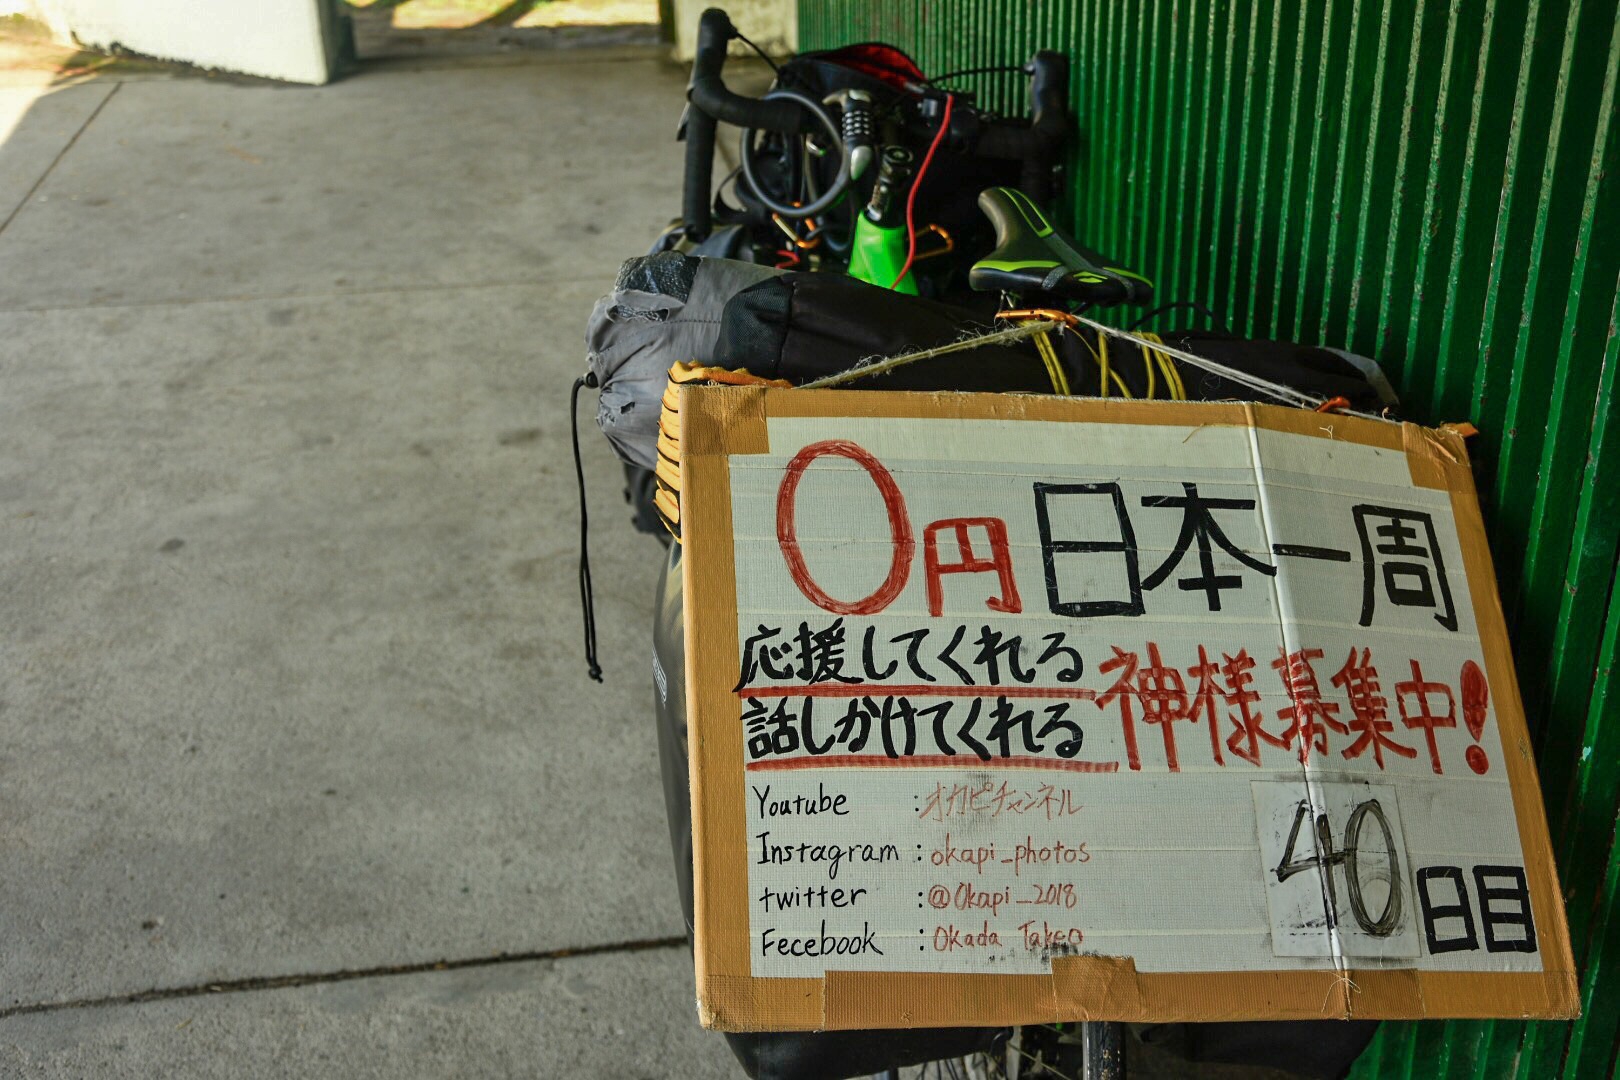 0円日本一周
応援してくれる
話しかけてくれる
神様募集中!
Youtube : オカピチャンネル
Instagram : okapi_photos
twitter : @Okapi_2018
Fecebook : Okada Takeo
40日目